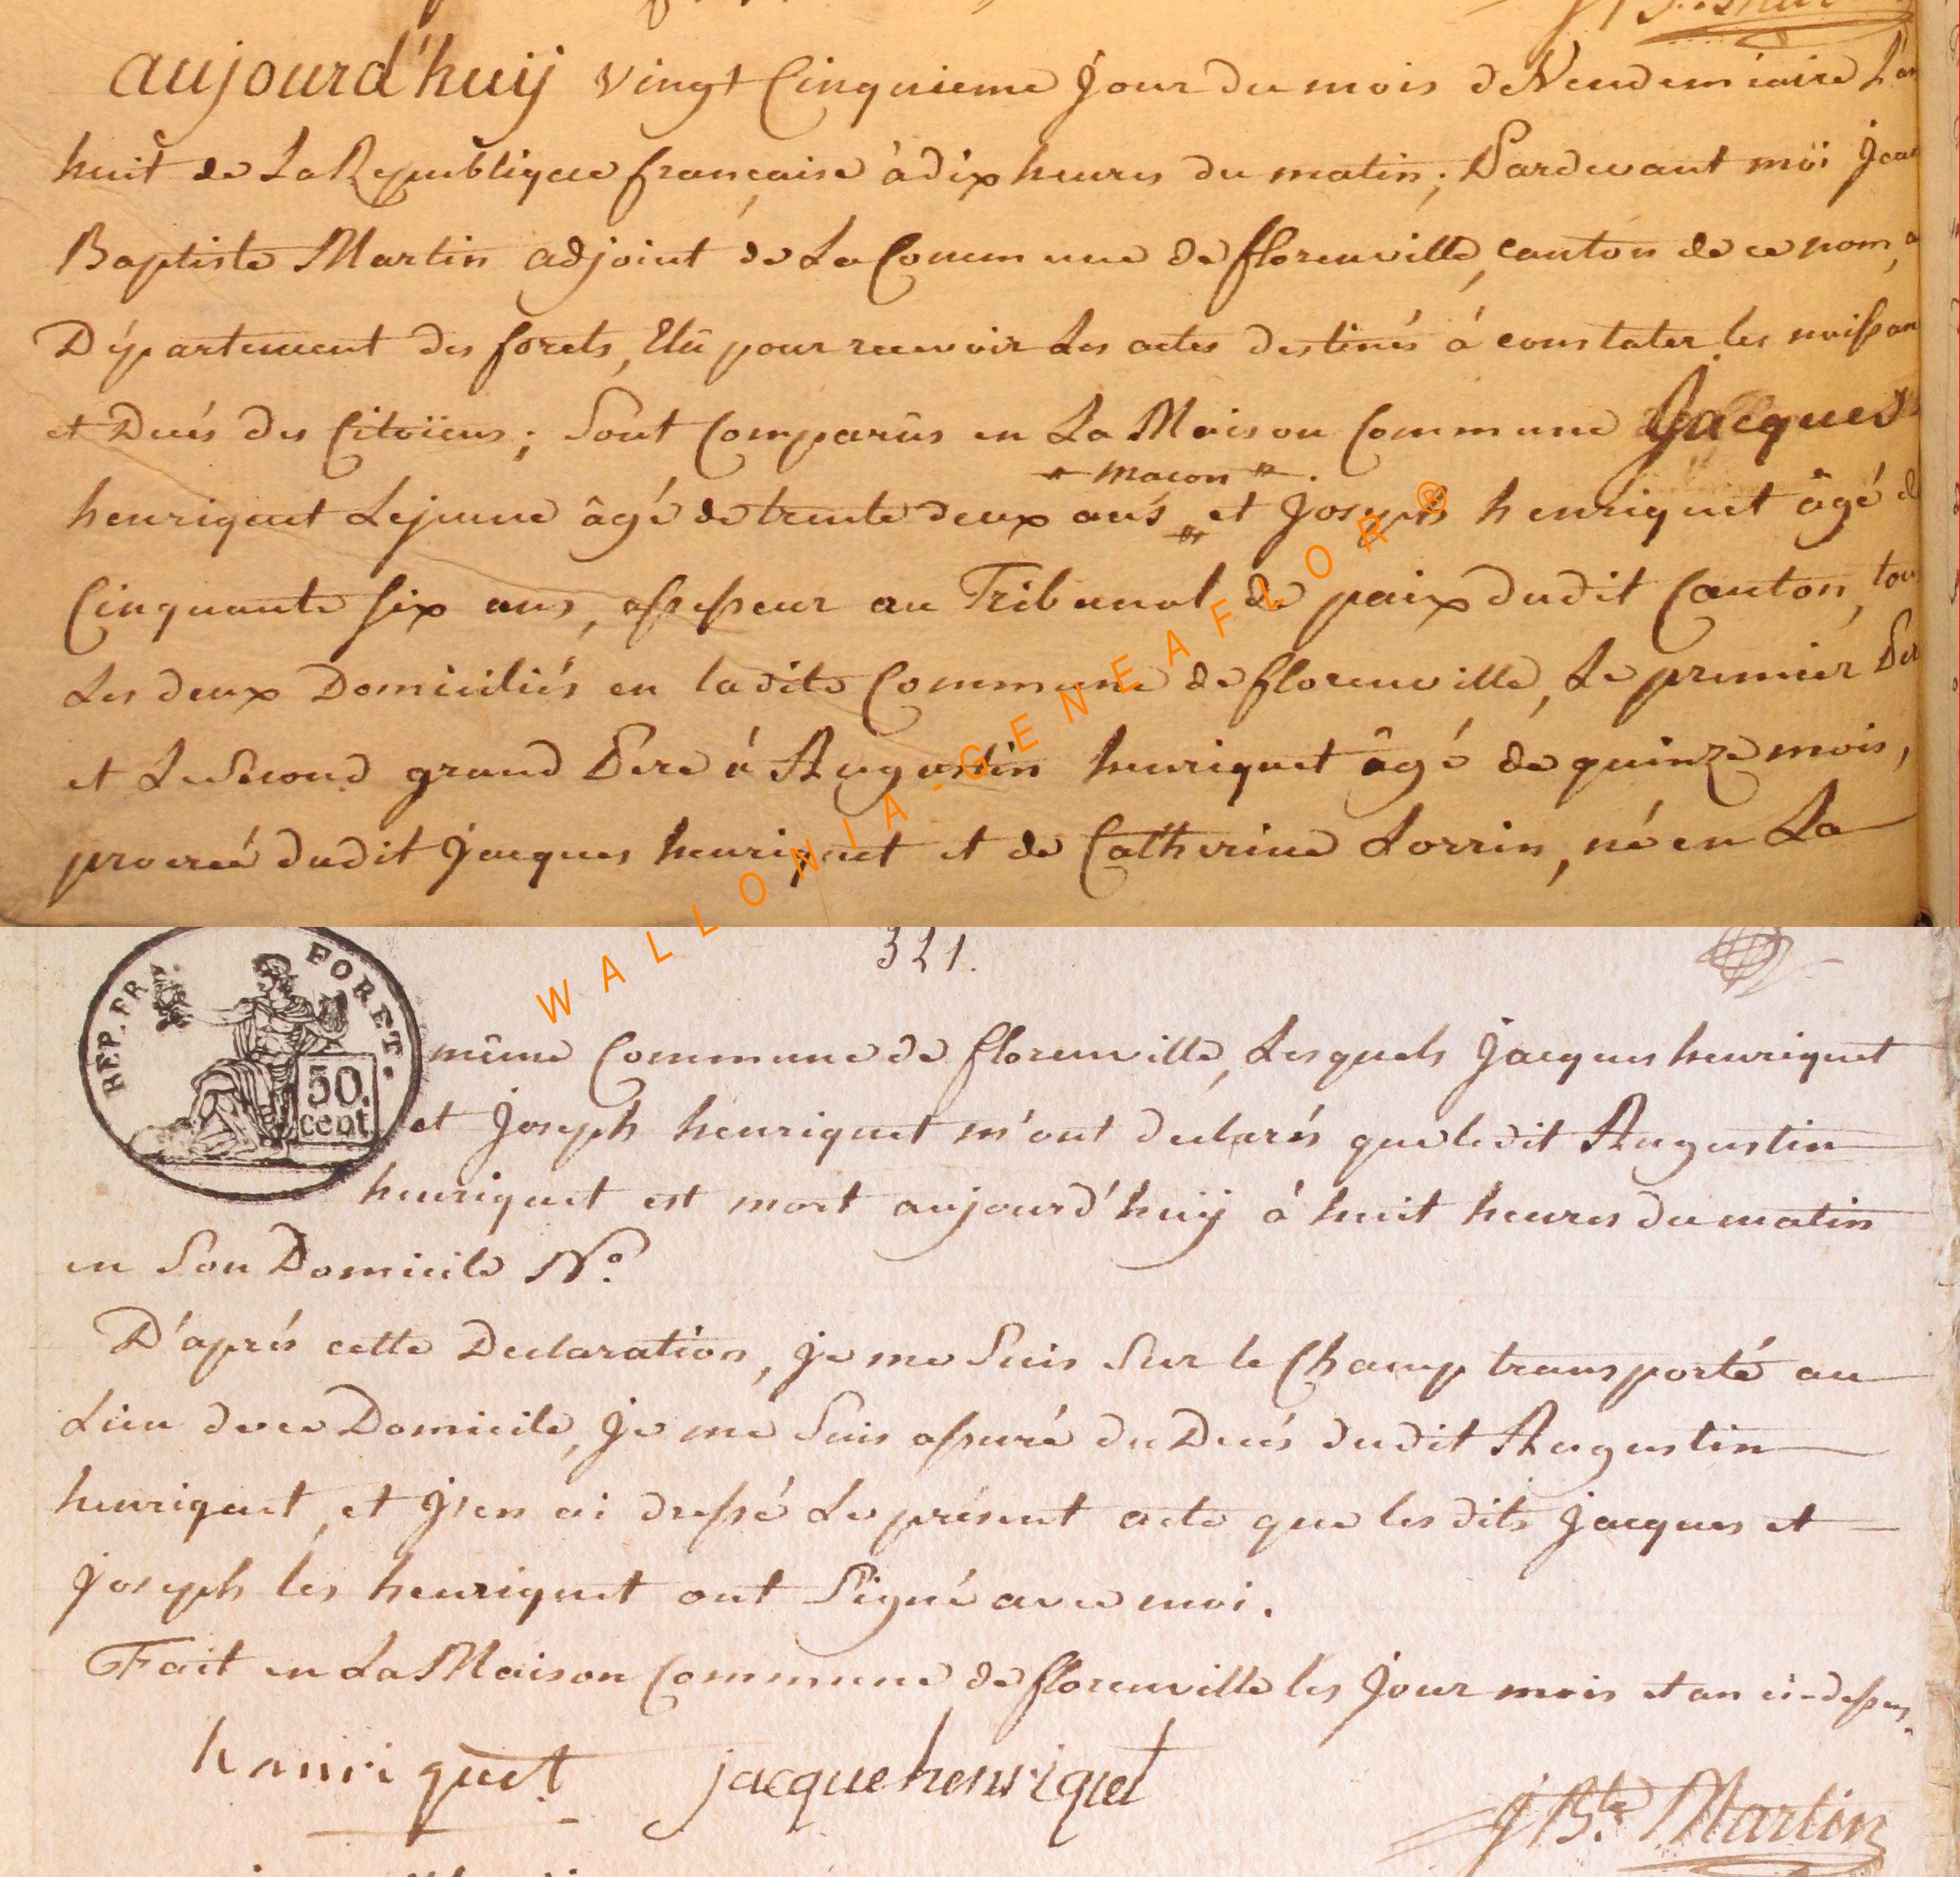 aujourd'huij vingt Cinquieme Jour du mois de Vendemiaire L'an
huit de La Republique française à dix heures du matin; Pardevant moi Jean
Baptiste Martin adjoint de La Commune de florenville, canton de ce nom,
Département des forets, Elû pour recevoir Les actes destinés à constater les naissan
et Decés des Citoïens; Sont Comparûs en La Maison Commune Jacques
" macon " .
henriquet Lejeune âgé de trente deux ans " et Joseph henriquet âgé de
Cinquante six ans, assesseur au Tribunal de paix dudit Canton, tous
Les deux Domiciliés en ladite Commune de florenville, Le premier Pere
et Le Second grand Pere à Augustin henriquet âgé de quinze mois,
procreé dudit Jacques henriquet et de Catherine Lorrin, né en La
321.
REP. FR. FORET.
50. cent.
même Commune de florenville, Lesquels Jacques henriquet
et Joseph henriquet m'ont declarés que ledit Augustin
henriquet est mort aujourd'huij à huit heures du matin
en Son Domicile N°.
D'aprés cette Declaration, je me Suis Sur le Champ transporté au
Lieu de ce Domicile, Je me Suis assuré du Decés dudit Augustin
henriquet, et J'en ai dressé Le présent acte que les dits Jacques et
Joseph les henriquet ont Signé avec moi.
Fait en La Maison Commune de florenville les Jour mois et an ci-dessus.
hanriquet jacque henriquet
J Bte Martin
WALLONIA-GENEAFLOR®